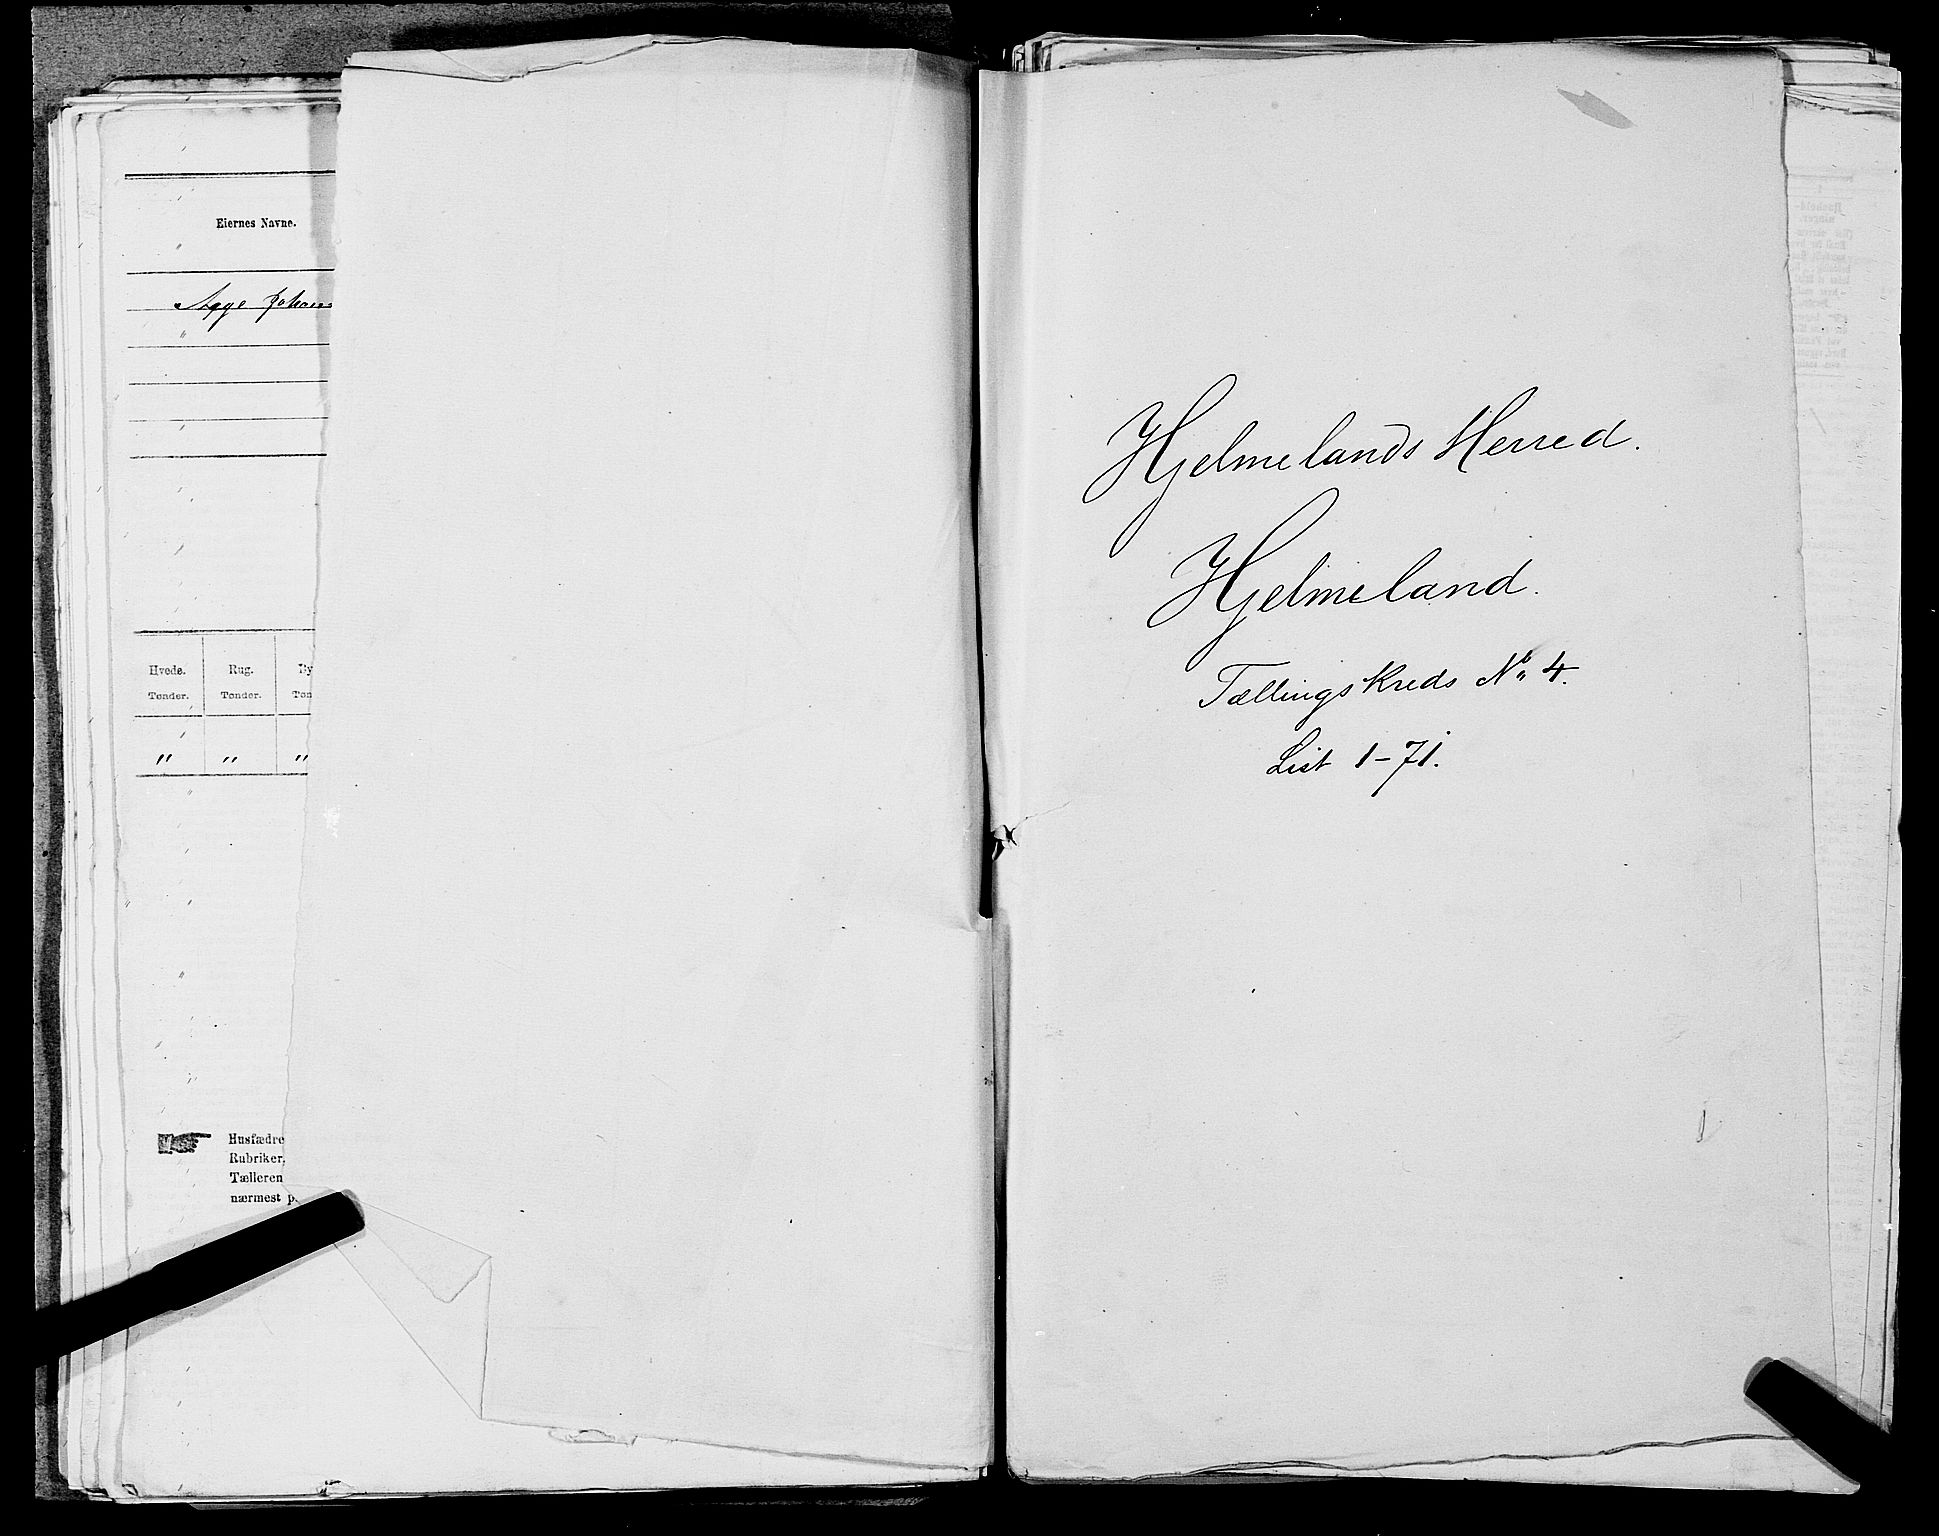 Eiernes Navne.
Hvede.
Tønder.
Rug.
Tønder.
By
Tøn
" " "
Husfædre
Rubriker.
Tælleren
nærmest p.
Hjelmelands Herred.
Hjelmeland.
Tællingskreds No 4.
List 1-71.